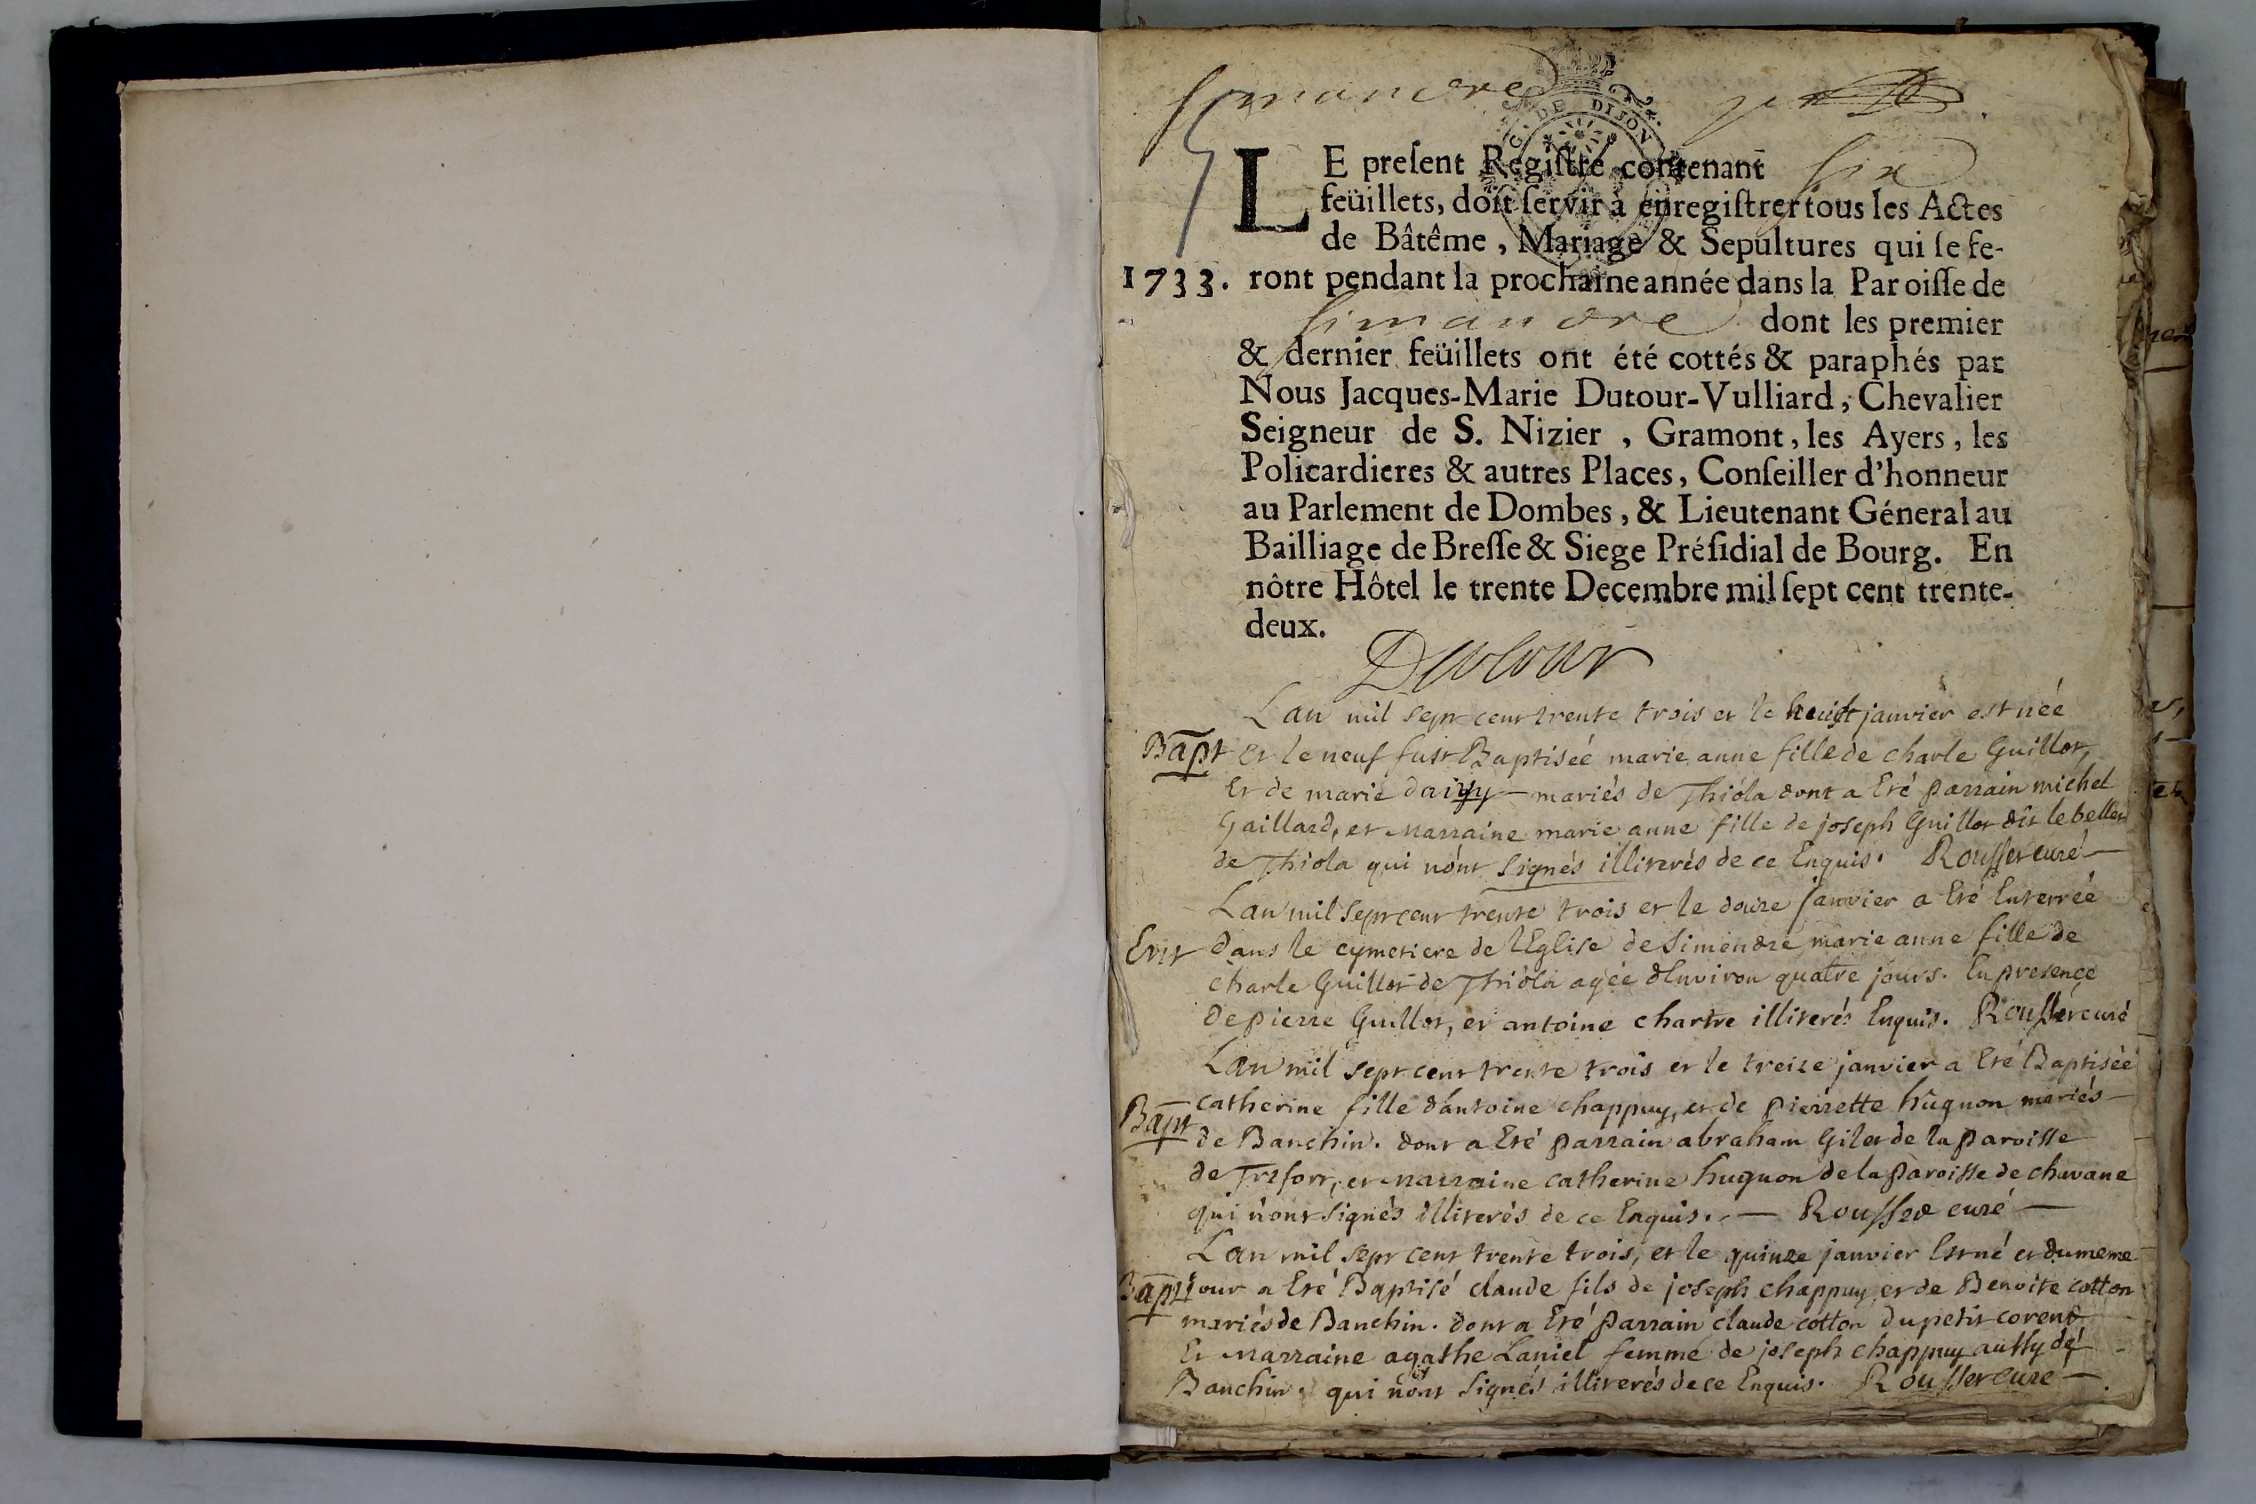 Simandre
G. DE DIJON
LE preſent Regiſtre contenant six
feüillets, doit ſervir à enregiſtrer tous les Actes
de Bâtême, Mariage & Sepultures qui ſe fe-
1733. ront pendant la prochaine année dans la Paroiſſe de
Simandre dont les premier
& dernier feüillets ont été cottés & paraphés par
Nous Jacques-Marie Dutour-Vulliard, Chevalier
Seigneur de S. Nizier, Gramont, les Ayers, les
Policardieres & autres Places, Conſeiller d'honneur
au Parlement de Dombes, & Lieutenant Géneral au
Bailliage de Breſſe & Siege Préſidial de Bourg. En
nôtre Hôtel le trente Decembre mil ſept cent trente-
deux.
Dutour
Lan mil sept cent trente trois et le huict janvier est née
Bapt et le neuf fust Baptiséé marie anne fille de charle Guillot,
Et de marie mariés de Thióla dont a Eté parrain michel
Gaillard, et marraine marie anne fille de joseph Guillot dît
de Thiola qui nónt signés illiterés de ce Enquis. Rousset curé
Lan mil sept cent trente trois et le douze janvier a Eté Enterréé
Ent dans le cymetiere de lEglise de Simendre marie anne fille de
charle Guillot de Thióla agée dEnviron quatre jours. En presence
de pierre Guillot, et antoine chartre illiterés Enquis. Rousset curé
Lan mil sept cent trente trois et le treize janvier a Eté Baptiséé
catherine fille dántoine chappuy, et de pierrette hugnon mariés
Bapt de Banchin. dont a Eté parrain abraham Gilet de la paroisse
de Trefort, et marraine catherine hugnon de la paroisse de chavane
qui nónt signés illiterés de ce Enquis. Rousset curé
Lan mil sept cent trente trois, et le quinze janvier Est né et du meme
Bapt jour a Eté Baptisé claude fils de joseph chappuy et de Benoite cotton
mariés de Banchin. dont a Eté parrain claude cotton du petit corent
Et marraine agathe Laniel femme de joseph chappuy aussy de
Banchin. qui nónt signés illiterés de ce Enquis. Rousset curé